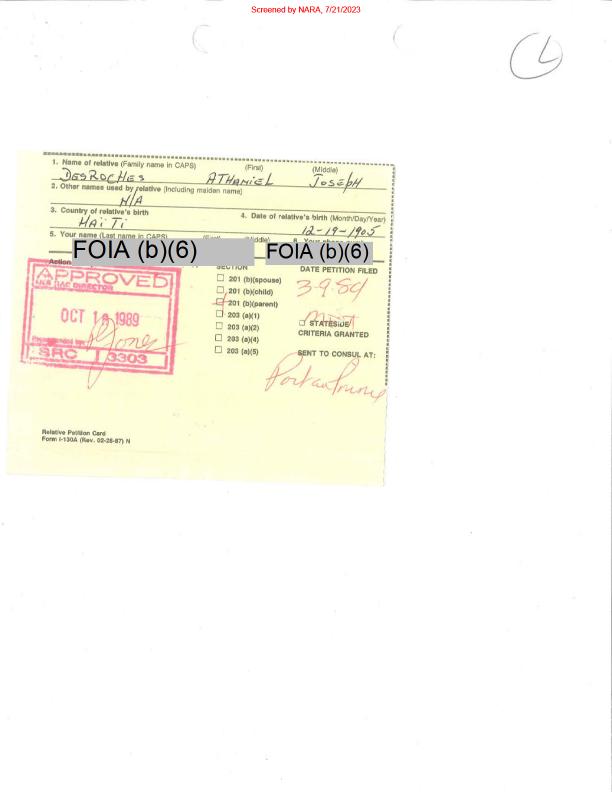 Screened by NARA, 7/21/2023
L
1. Name of relative (Family name in CAPS) (First) (Middle)
DESROCHES ATHANIEL JOSEPH
2. Other names used by relative (Including maiden name)
N/A
3. Country of relative's birth 4. Date of relative's birth (Month/Day/Year)
HAITI 12-19-1905
5. Your name (Last name in CAPS) (First) (Middle)
FOIA (b)(6) FOIA (b)(6)
Action
SECTION DATE PETITION FILED
APPROVED
DIRECTOR
OCT 1989
Jones
SRC 3303
201 (b)(spouse)
201 (b)(child)
201 (b)(parent)
203 (a)(1)
203 (a)(2)
203 (a)(4)
203 (a)(5)
3-9-89
Met
STATESIDE
CRITERIA GRANTED
SENT TO CONSUL AT:
Port au Prince
Relative Petition Card
Form I-130A (Rev. 02-28-87) N